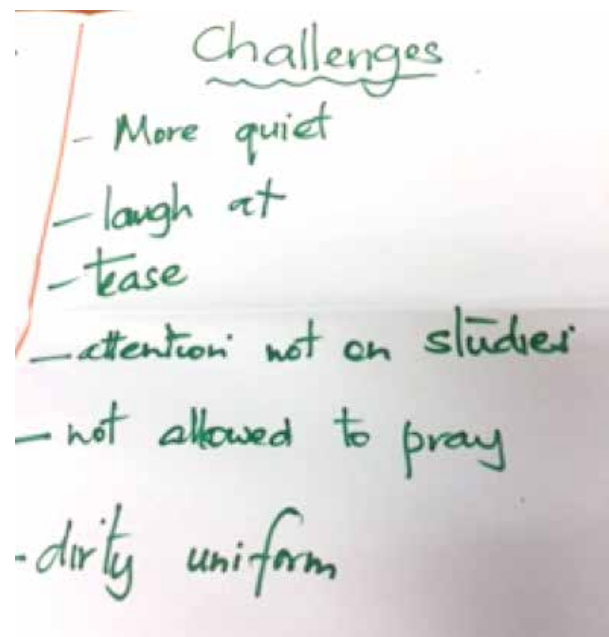 Challenges
- More quiet
- laugh at
- tease
- attention not on studies
- not allowed to pray
- dirty uniform